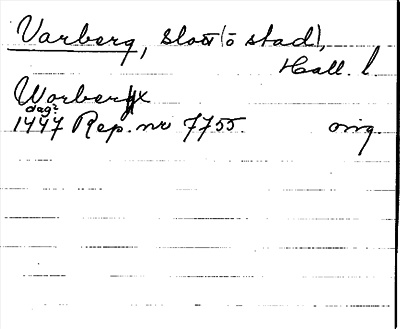 Varberg, slott (o stad),
Hall. l.
Worbergx
dag?
1447 Rep. nr 7755. orig.